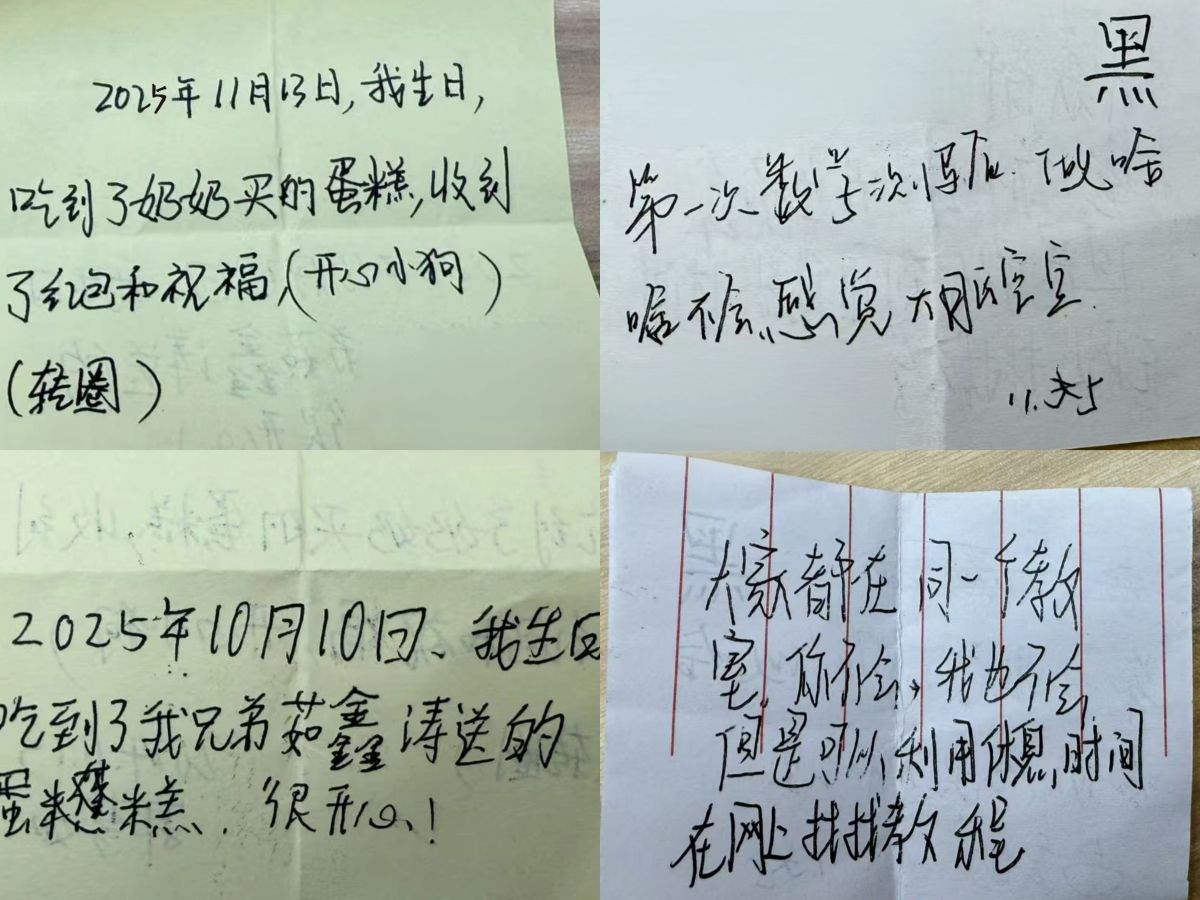 2025年11月13日,我生日,
吃到了奶奶买的蛋糕,收到
了红包和祝福,(开心小狗)
(转圈)
黑
第一次数学 次 后.做啥
啥不会,感觉大脑空空.
11.
2025年10月10日、我生日
吃到了我兄弟茹鑫涛送的
蛋 糕.很开心!
大家都在同一个教
室,你不会,我也不会,
但是可以利用休息时间
在网上找找教程